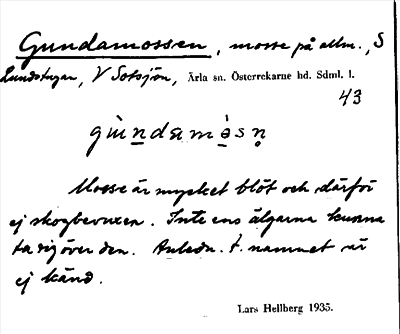 Gundamossen, mosse på allm., S
Lundstugan, V Sotsjön, Ärla sn. Österrekarne hd. Sdml. l.
43
gùndamå̀sn̥
Mosse är mycket blöt och därför
ej skogbevuxen. Inte ens älgarna kunna
ta sig över den. Anledn. t. namnet är
ej känd.
Lars Hellberg 1935.